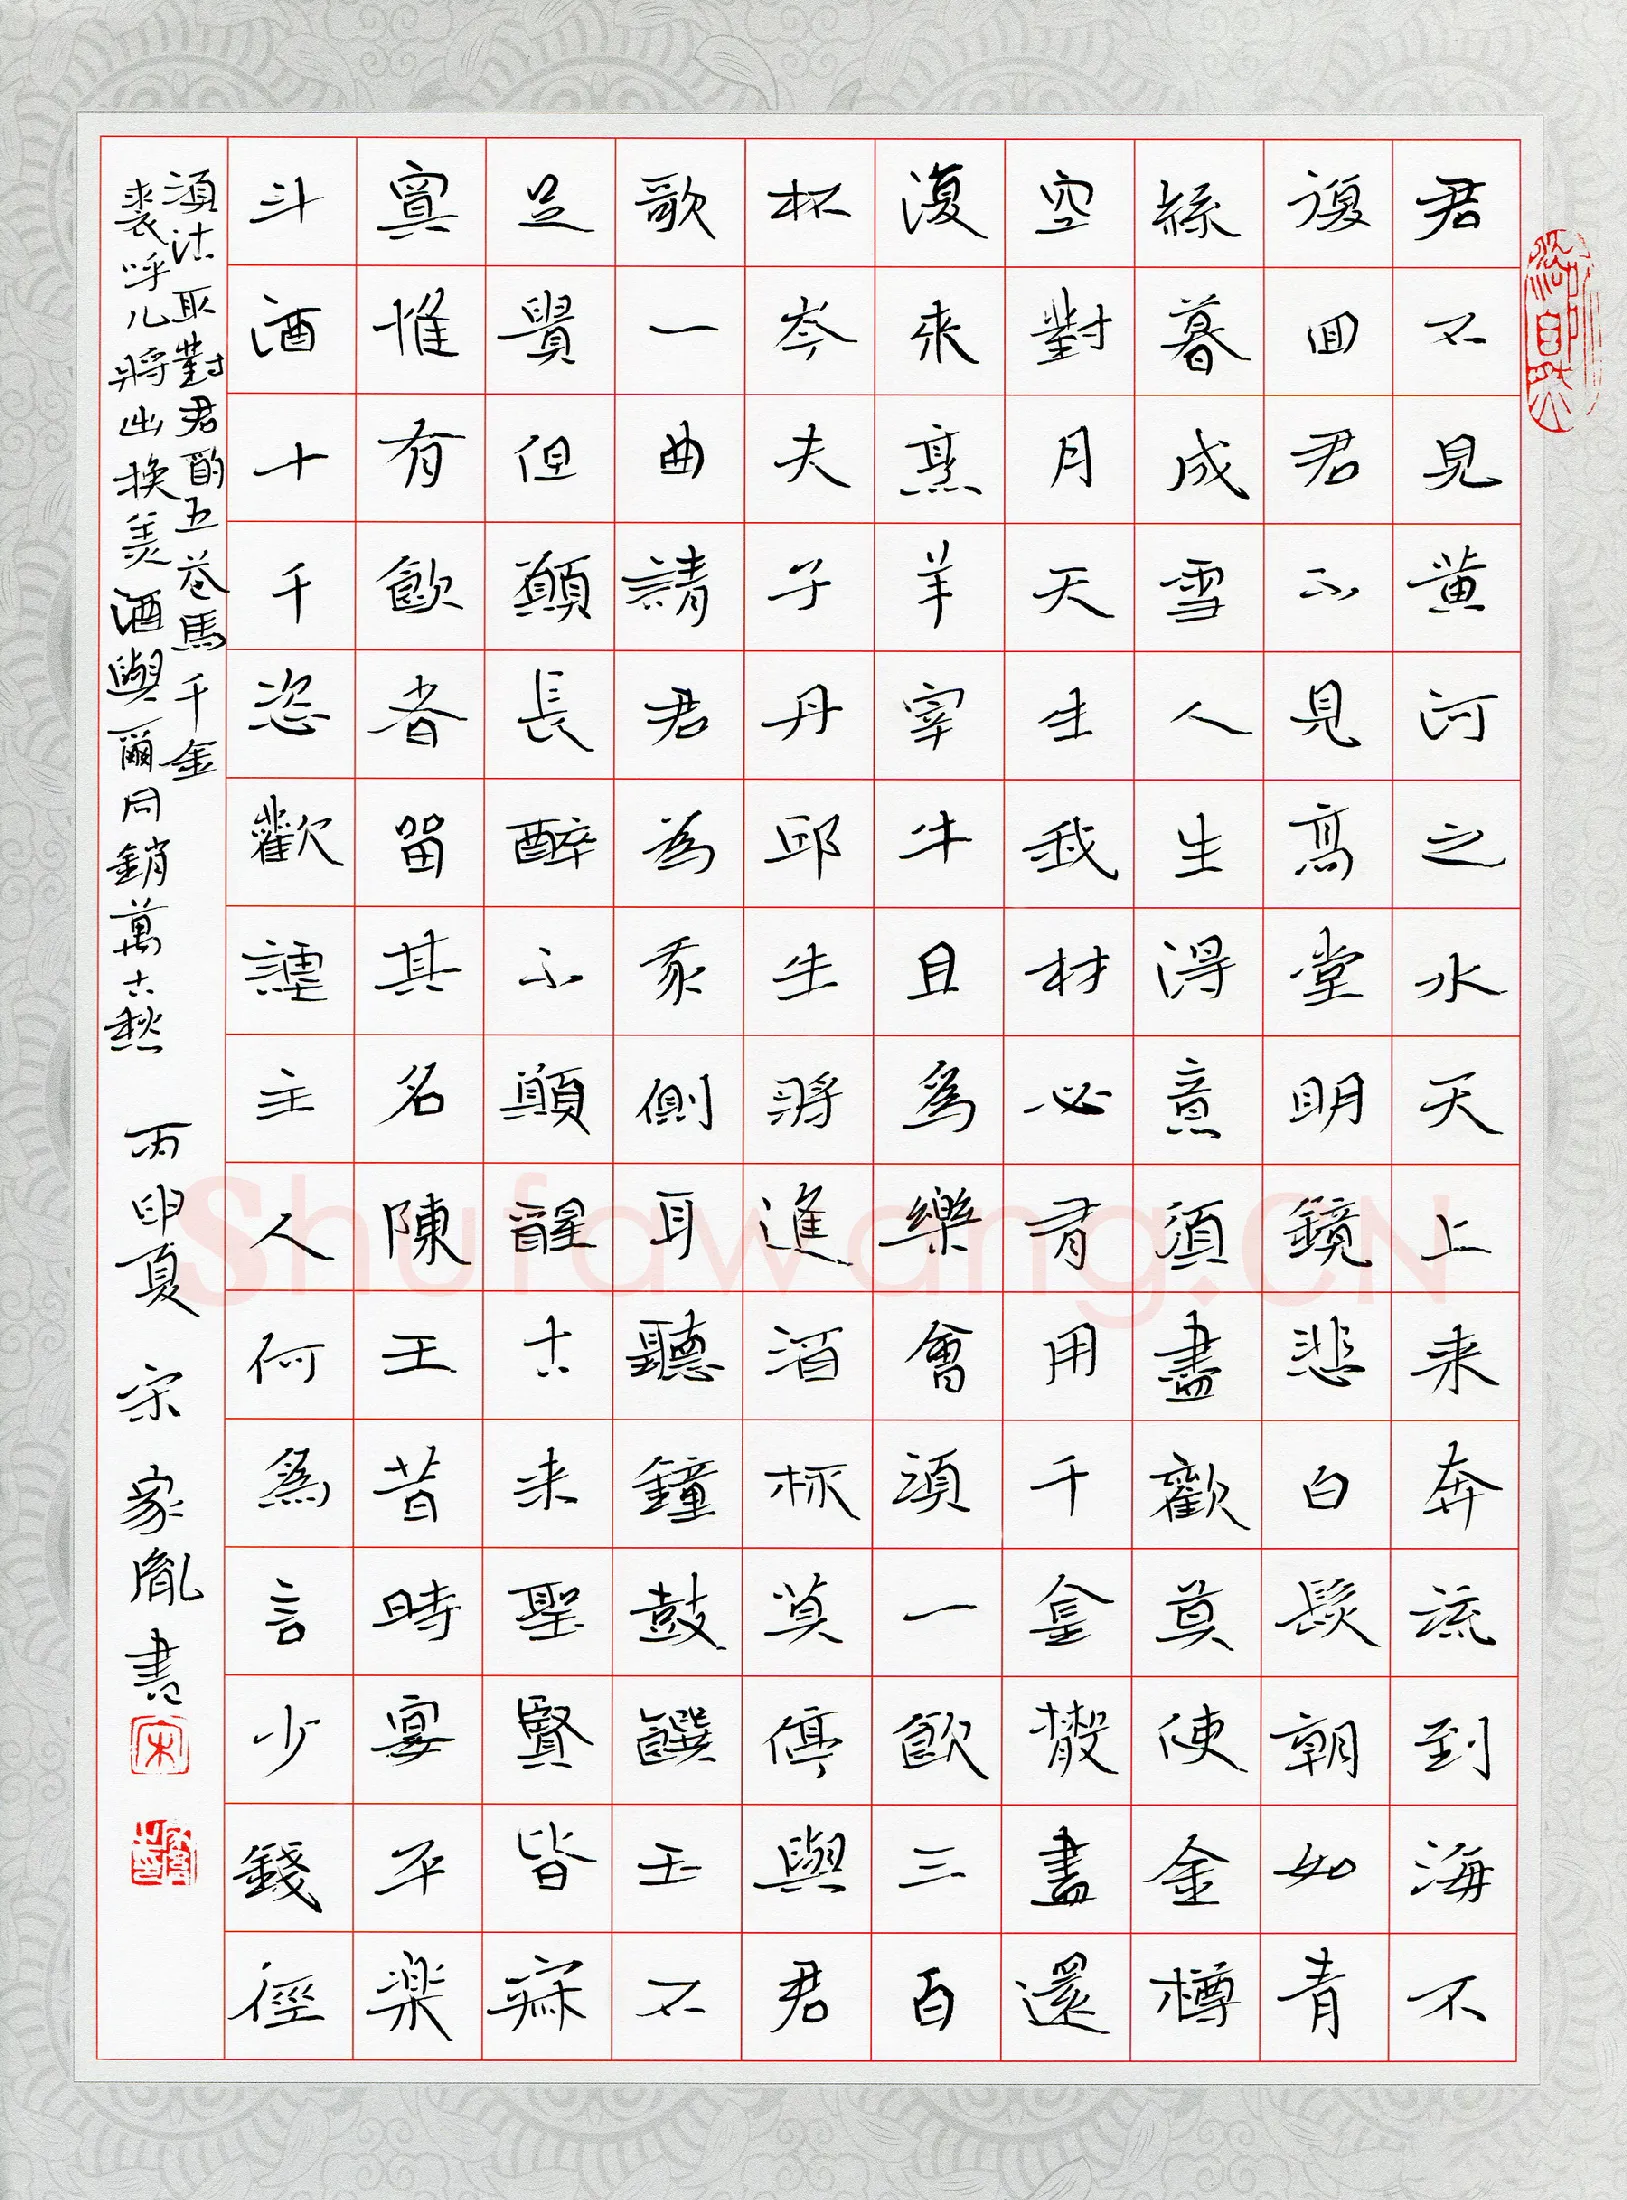 君不見黃河之水天上来奔流到海不
復回君不見高堂明鏡悲白髮朝如青
絲暮成雪人生得意須盡歡莫使金樽
空對月天生我材必有用千金散盡還
復來烹羊宰牛且為樂會須一飲三百
杯岑夫子丹邱生將進酒杯莫停與君
歌一曲請君為我側耳聽鐘鼓饌玉不
足貴但願長醉不願醒古来聖賢皆寂
寞惟有飲者留其名陳王昔時宴平樂
斗酒十千恣歡謔主人何為言少錢徑
須沽取對君酌五花馬千金
裘呼儿將出換美酒與爾同銷萬古愁
丙申夏 宋家胤書
宋
Shufawang.CN